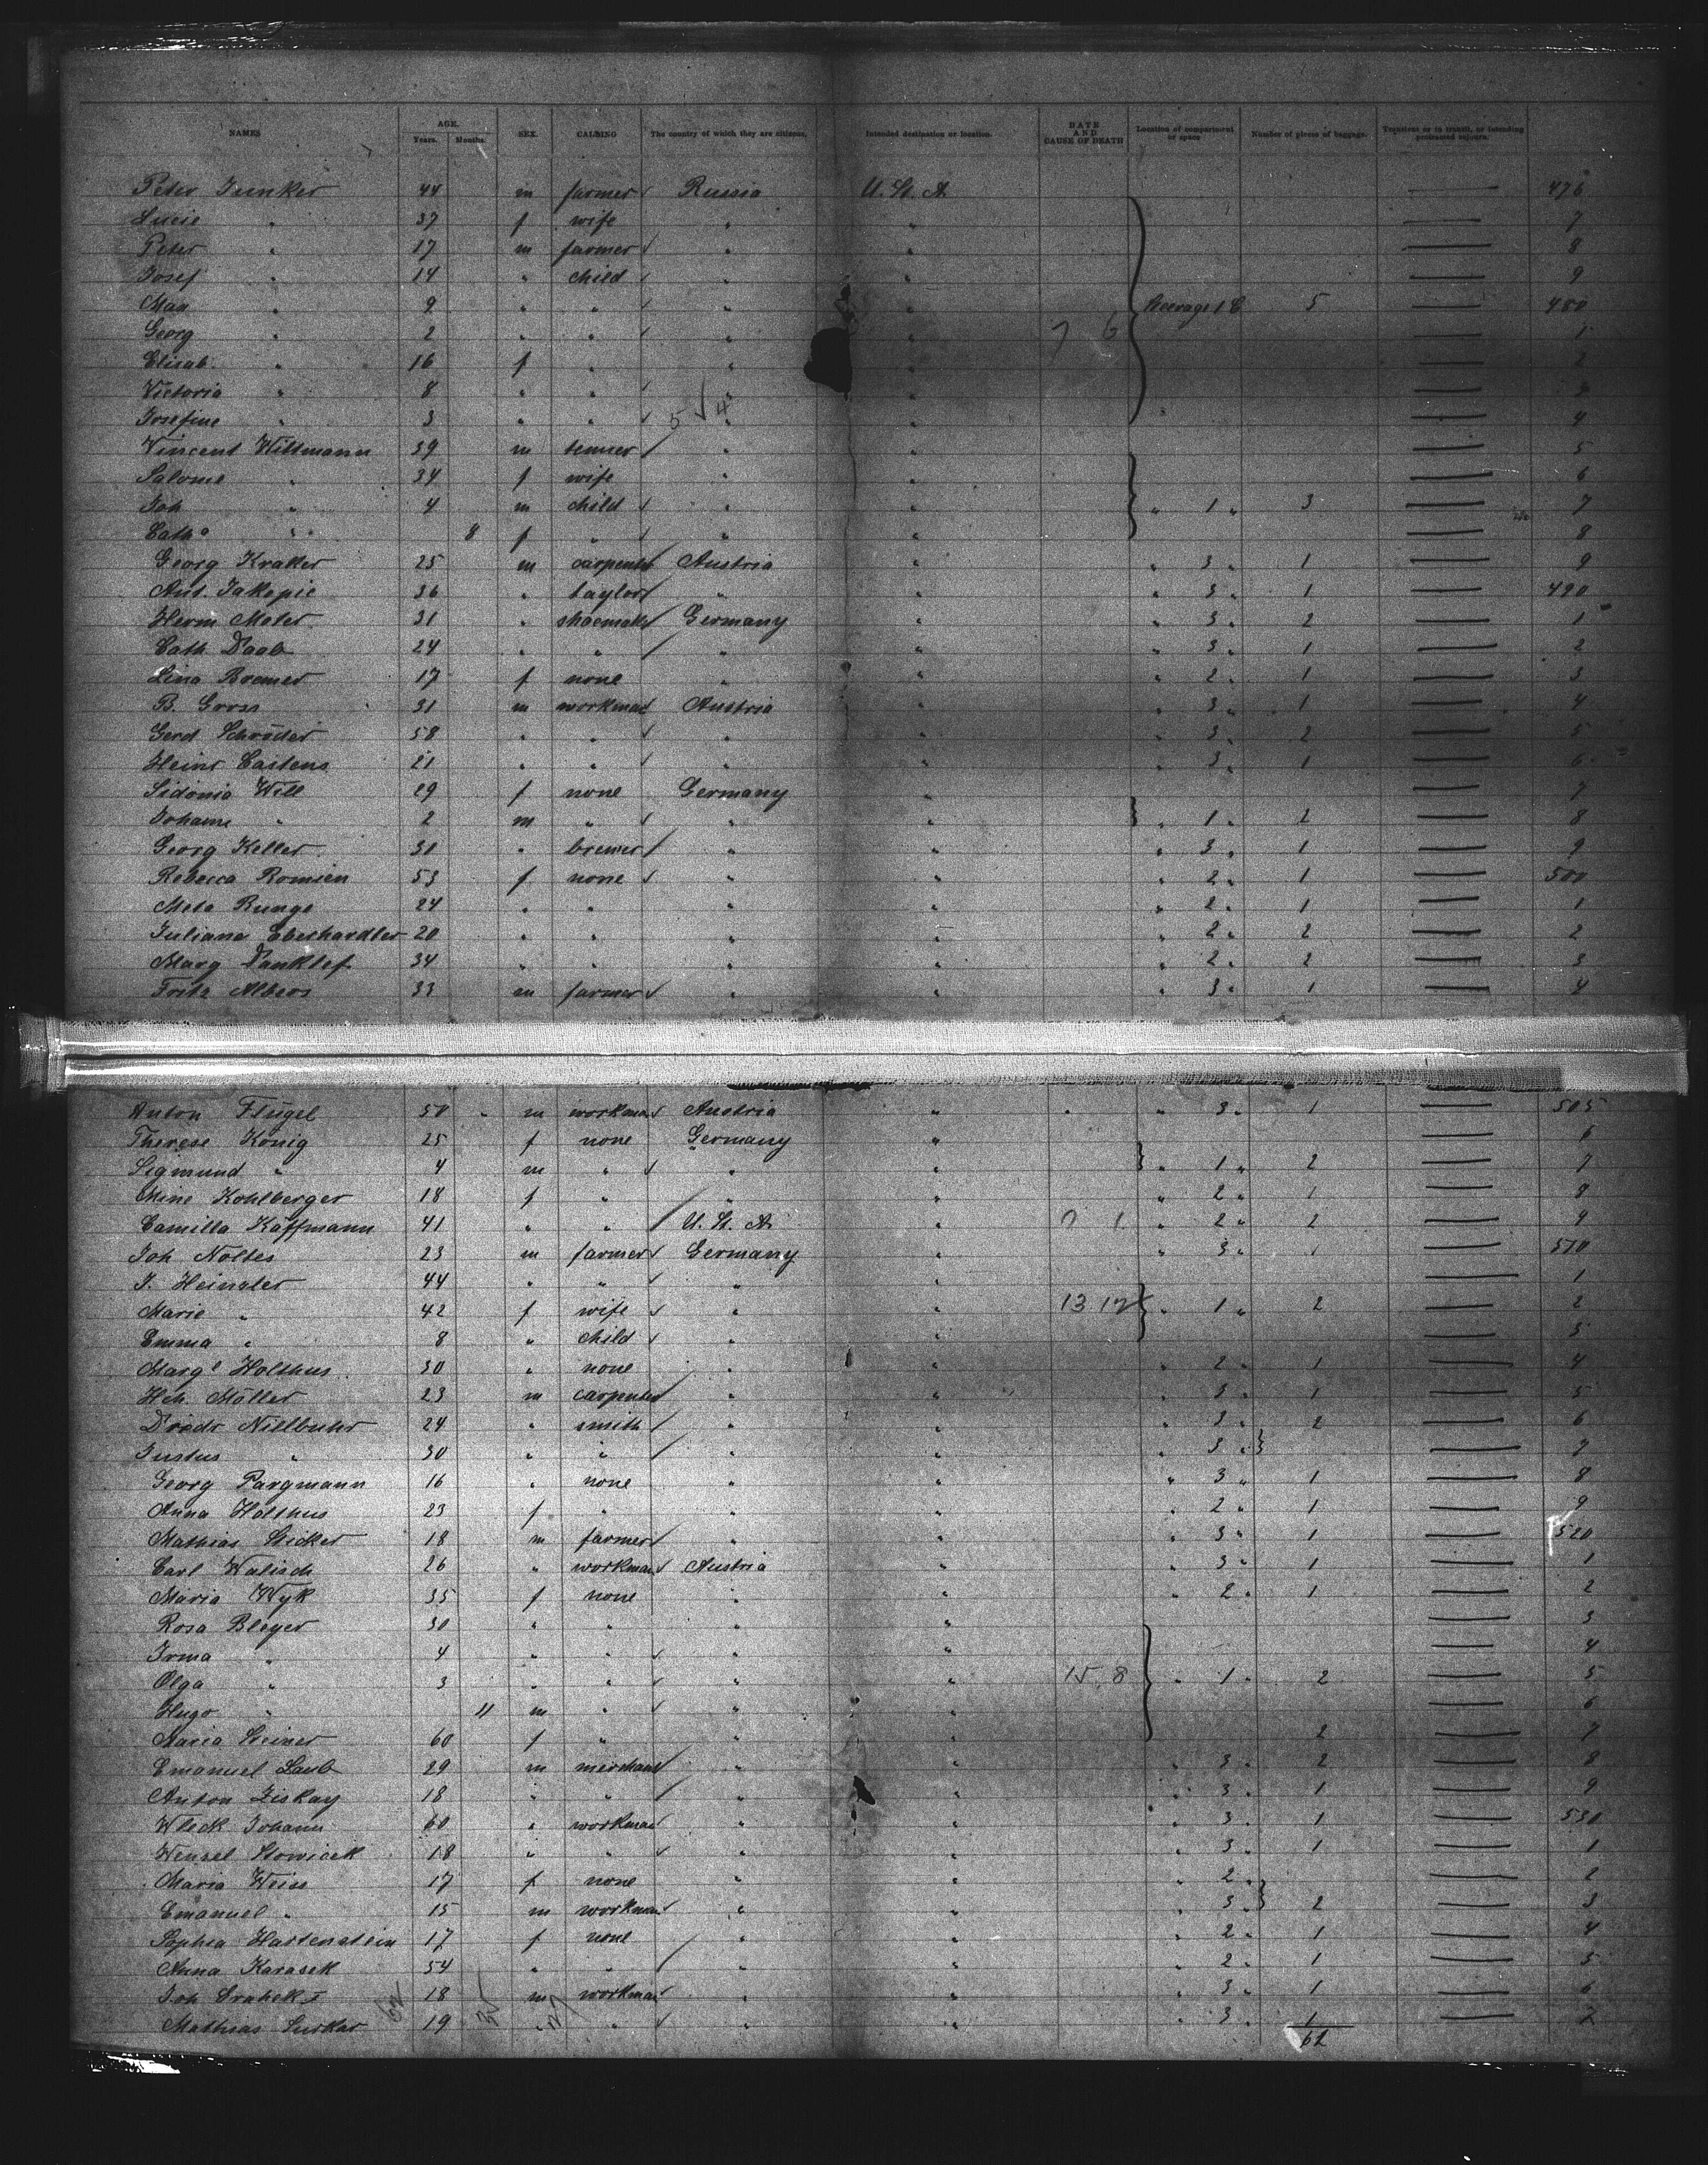 NAMES AGE. SEX. CALLING The country of which they are citizens. Intended destination or location. DATE AND CAUSE OF DEATH Location of compartment or space Number of pieces of baggage. Transient or in transit, or intending protracted sojourn.
Years. Months.
Peter Junker 44 m farmer Russia U. St. A. — 476
Lucie " 37 f wife " " — 7
Peter " 17 m farmer " " — 8
Josef " 14 " child " " — 9
Max " 9 " " " " Steerage 1 C 5 — 480
Georg " 2 " " " " 7 6 — 1
Elisab. " 16 f " " " — 2
Victoria " 8 " " " " — 3
Josefine " 3 " " 5 4 " " — 4
Vincent Wittmann 39 m " " — 5
Salome " 34 f wife " " — 6
Joh " 4 m child " " " 1 " 3 — 7
Cath. " 8 f " " " — 8
Georg Kraker 25 m carpenter Austria " " 3 " 1 — 9
Ant. Jakopic 36 " taylor " " " 3 " 1 — 490
Herm Meter 31 " shoemaker Germany " " 3 " 2 — 1
Cath Daab 24 " " " " " 3 " 1 — 2
Lina Bremer 17 f none " " " 2 " 1 — 3
B. Gross 31 m workman Austria " " 3 " 1 — 4
Gerd Schröder 58 " " " " " 3 " 2 — 5
Heinr Carstens 21 " " " " " 3 " 1 — 6
Sidonia Will 29 f none Germany " — 7
Johann " 2 m " " " " 1 " 2 — 8
Georg Keller 31 " brewer " " " 3 " 1 — 9
Rebecca Romien 53 f none " " " 2 " 1 — 500
Meta Runge 24 " " " " " 2 " 1 — 1
Juliana Eberhardler 20 " " " " " 2 " 2 — 2
Marg Danklef 34 " " " " " 2 " 2 — 3
Fritz Albers 33 m farmer " " " 3 " 1 — 4
Anton Flügel 50 " m workman Austria " " " 3 " 1 — 505
Therese König 25 f none Germany " — 6
Sigmund " 4 m " " " " 1 " 2 — 7
Mine Kohlberger 18 f " " " " 2 " 1 — 8
Camilla Kaffmann 41 " " U. St. A. " 1 " 2 " 2 — 9
Joh Noltes 23 m farmer Germany " " 3 " 1 — 510
J. Heinzler 44 " " " " — 1
Marie " 42 f wife " " 13 12 " 1 " 2 — 2
Emma " 8 " child " " — 3
Marg. Holthus 30 " none " " " 2 " 1 — 4
Hch. Möller 23 m carpenter " " " 3 " 1 — 5
Diedr Nillbuhr 24 " smith " " " 3 " 2 — 6
Justus " 30 " " " " " 3 " — 7
Georg Pargmann 16 " none " " " 3 " 1 — 8
Anna Holthus 23 f " " " " 2 " 1 — 9
Mathias Sticker 18 m farmer " " " 3 " 1 — 520
Carl Walisch 26 " workman Austria " " 3 " 1 — 1
Maria Wyk 35 f none " " " 2 " 1 — 2
Rosa Bleyer 30 " " " " — 3
Irma " 4 " " " " — 4
Olga " 3 " " " " 15 8 " 1 " 2 — 5
Hugo " 11 m " " " — 6
Maria Steiner 60 f " " " 2 — 7
Emanuel Laub 29 m merchant " " " 3 " 2 — 8
Anton Ziskay 18 " " " " " 3 " 1 — 9
Wleck Johann 60 " workman " " " 3 " 1 — 530
Wenzel Slowicek 18 " " " " " 3 " 1 — 1
Maria Weiss 17 f none " " " 2 " — 2
Emanuel " 15 m workman " " " 3 " 2 — 3
Sophia Hartenstein 17 f none " " " 2 " 1 — 4
Anna Karasek 54 " " " " " 2 " 1 — 5
Joh 18 m workman " " " 3 " 1 — 6
Mathias 19 " " " " " 3 " 1 — 7
62